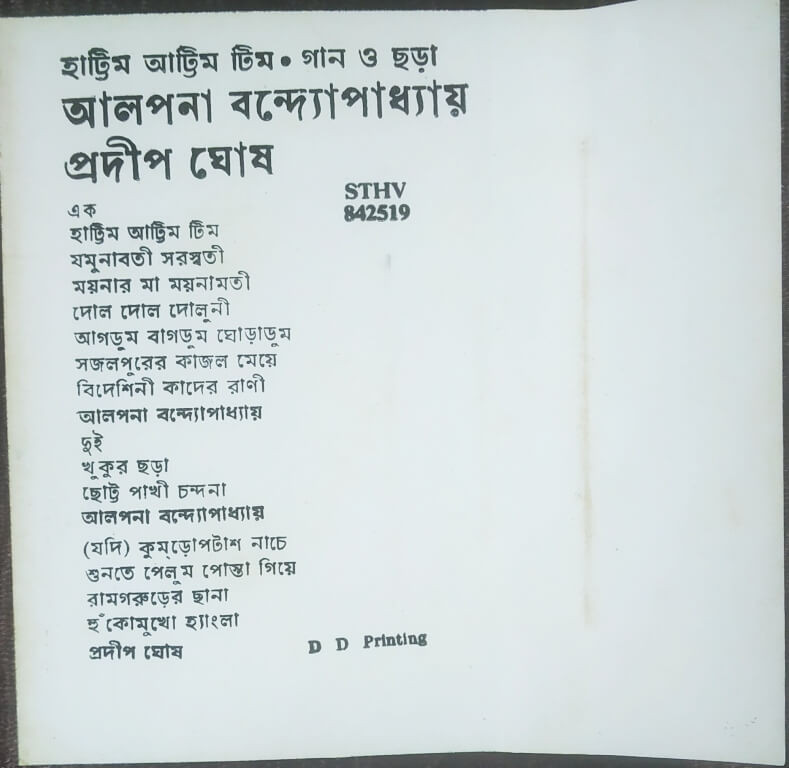 হাট্টিম আট্টিম টিম • গান ও ছড়া
আলপনা বন্দ্যোপাধ্যায়
প্রদীপ ঘোষ
STHV
842519
এক
হাট্টিম আট্টিম টিম
যমুনাবতী সরস্বতী
ময়নার মা ময়নামতী
দোল দোল দোলুনী
আগডুম বাগডুম ঘোড়াডুম
সজলপুরের কাজল মেয়ে
বিদেশিনী কাদের রাণী
আলপনা বন্দ্যোপাধ্যায়
দুই
খুকুর ছড়া
ছোট্ট পাখী চন্দনা
আলপনা বন্দ্যোপাধ্যায়
(যদি) কুম্‌ড়োপটাশ নাচে
শুনতে পেলুম পোস্তা গিয়ে
রামগরুড়ের ছানা
হুঁকোমুখো হ্যাংলা
প্রদীপ ঘোষ
D D Printing